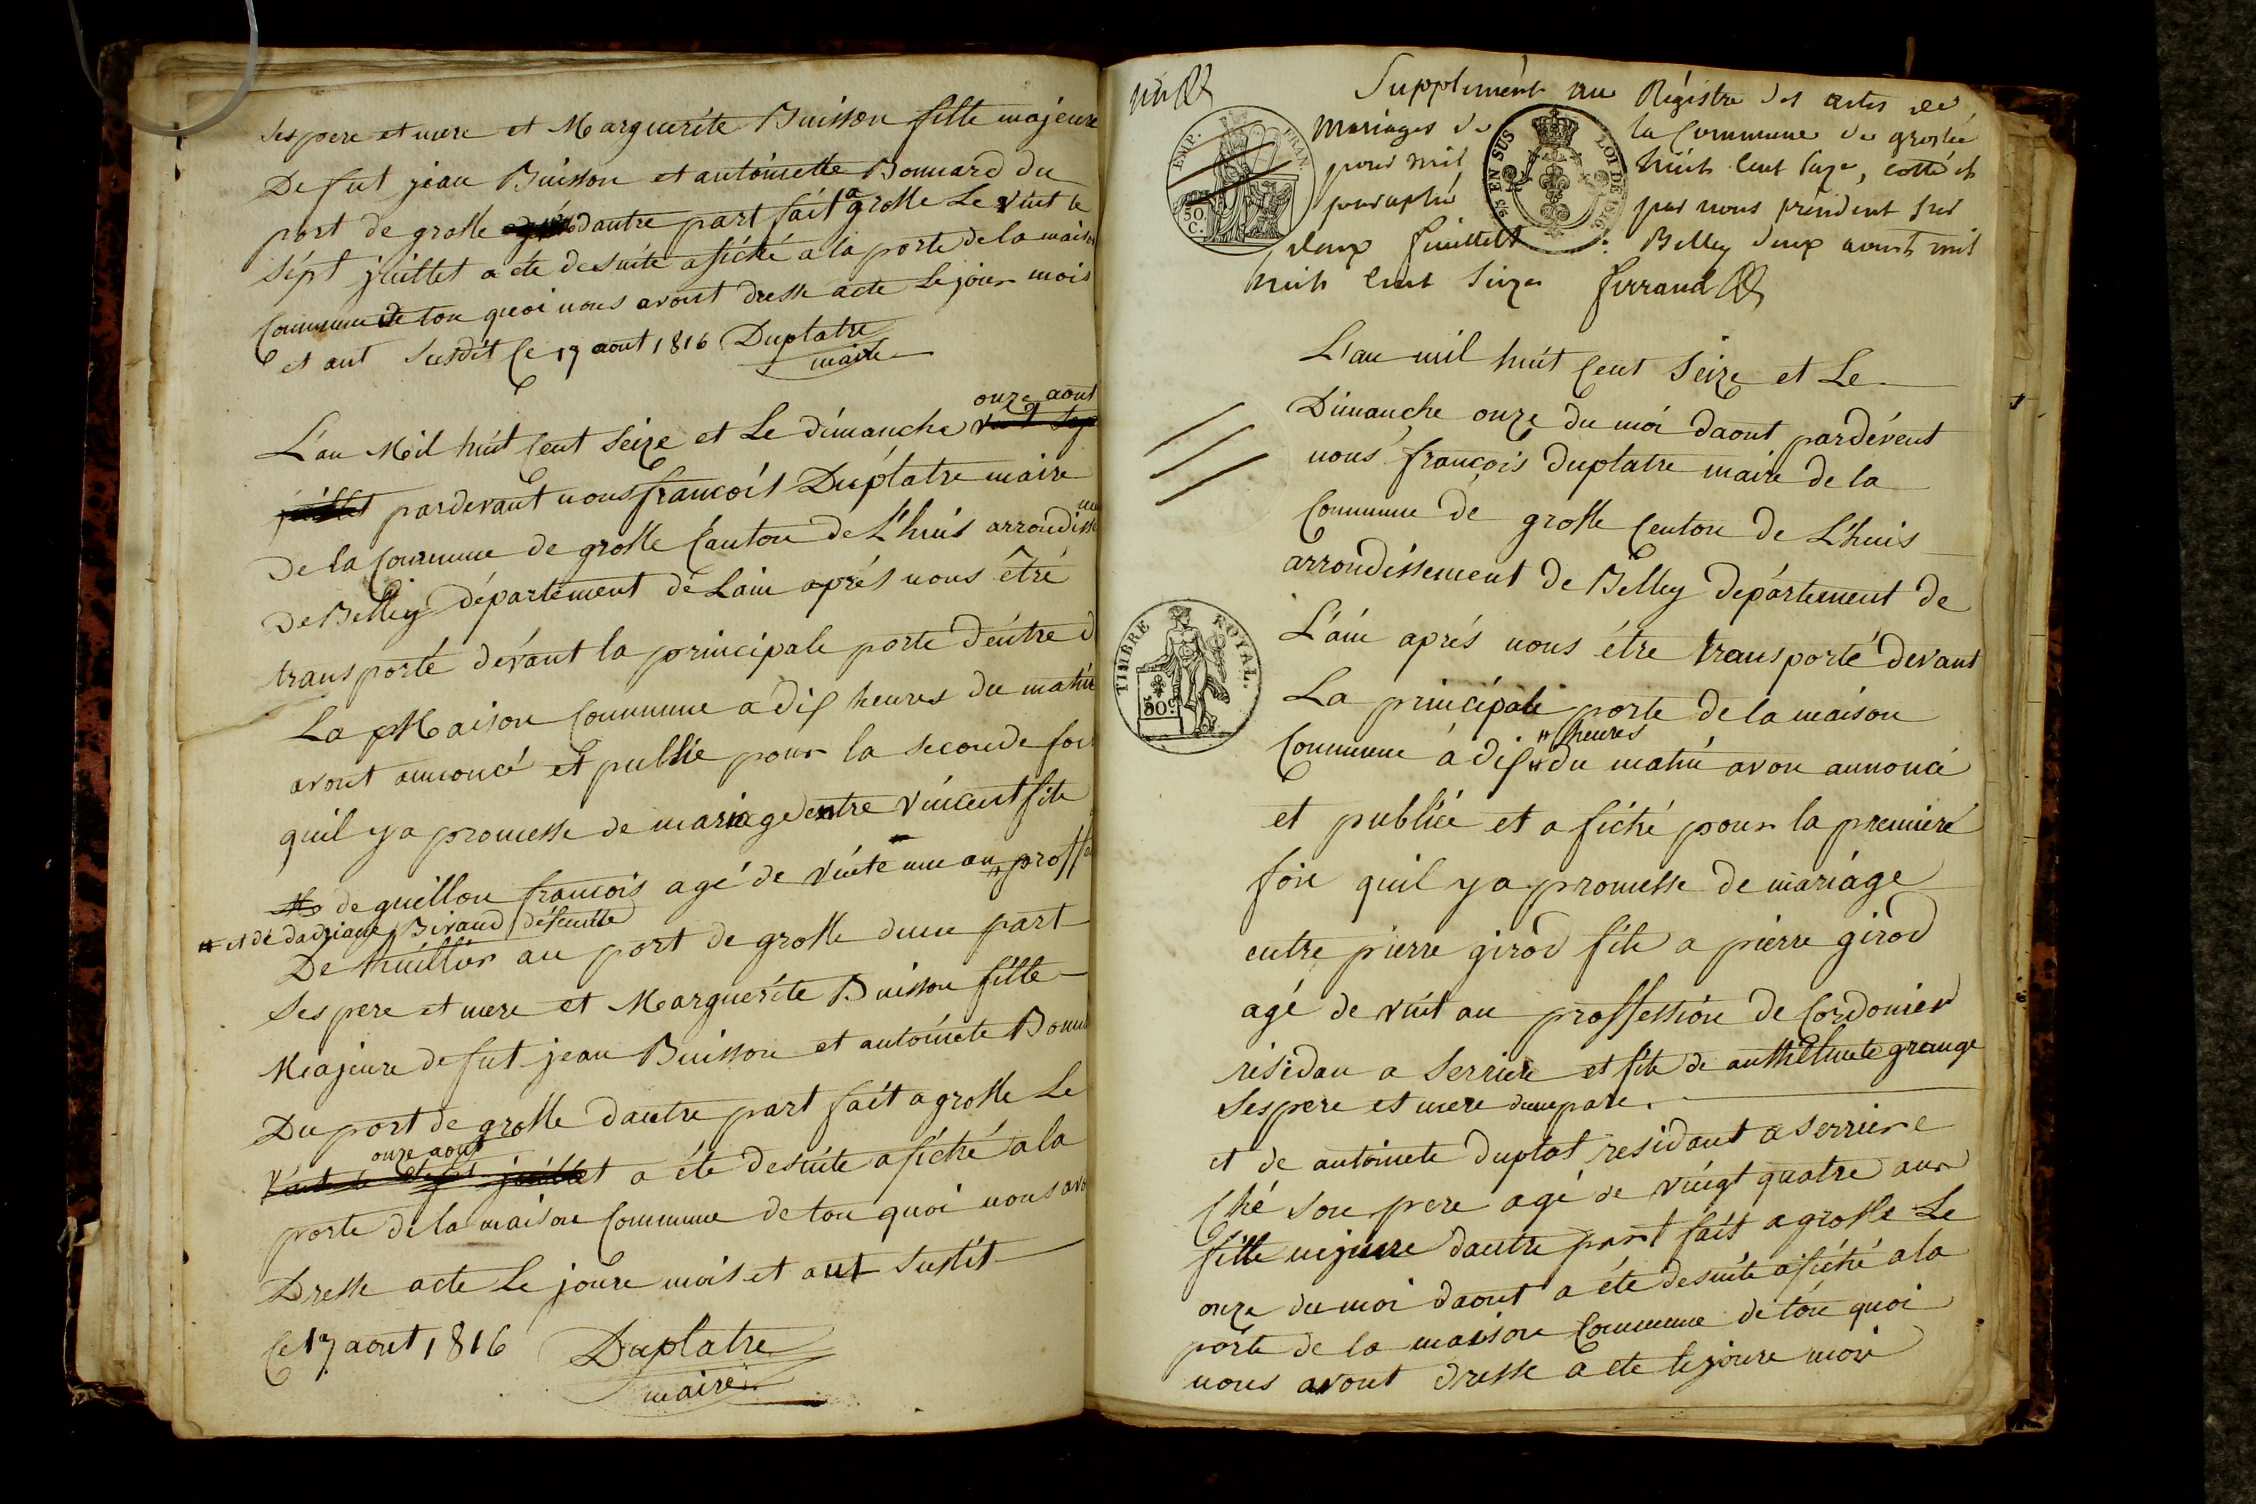 ses pere et mere et Marguerite Buisson fille majeure
De fut jean Buisson et antoinette Bonnard du
port de grolle dautre part fait a grolle Le vint te
sépt juillet a ete desuite afiché a la porte de la maison
Commune de tou quoi nous avont dresse acte Le jour mois
et ant susdit Ce 17 aout 1816 Duplatre
maire
onze aout
L'an Mil huit Cent Seize et Le dimanche vint sept
juillet pardevant nous françois Duplatre maire
De la Commune de grolle Canton de L'huis arrondisse
De Belley département de Lain aprés nous étre
transporté dévant la principale porte d'éntre d
La Maison Commune a dix heures du matin
avont annoncé et publie pour la seconde foi
quil y a promesse de mariage entre vincent fils
de guillon francois agé de vinte une an proffe
et de dadziane Bivaud défeunte
De huillier au port de grolle dune part
Ses pere et mere et Marguerite Buisson fille
Majeure de fut jean Buisson et antoinete Bonn
Du port de grolle dautre part fait a grolle Le
onze aout
vint te sept juillet a éte desuite afiché a la
porte de la maison Commune de tou quoi nous avo
Dresse acte Le joure mois et ant susdit
Ce 17 aout 1816 Duplatre
maire
Supplément au Régistre des actes de
Mariages de la Commune de groslée
pour mil huit Cent Seize, cotté et
paraphé par nous président sur
deux feuillets : Belley deux avout mil
huit Cent Seize Ferrand
EMP. FRAN.
50 C.
2/5 EN SUS LOI DE 1816
L'an mil huit Cent Seize et Le
Dimanche onze du moi daout pardévent
nous françois Duplatre maire de la
Commune de grolle Centon de L'huis
arrondissement de Belley département de
L'ain aprés nous étre transporté devant
La principale porte de la maison
heures
Commune a dix du matin avon annoncé
et publiée et a fiché pour la premiere
TIMBRE ROYAL.
50 c
foie quil y a promesse de mariage
entre pierre girod fils a pierre girod
agé de vint an proffession de Cordonier
résidan a Serriere et fils de anthelmete grange
Ses pere et mere dune pare.
et de antoinete duplat residant a serriere
Ché son pere agé de vingt quatre ans
fille mejeure dautre part fait a grolle Le
onze du moi daout a éte desuite afiché a la
porte de la maison Commune de tou quoi
nous avont dresse acte le joure mois